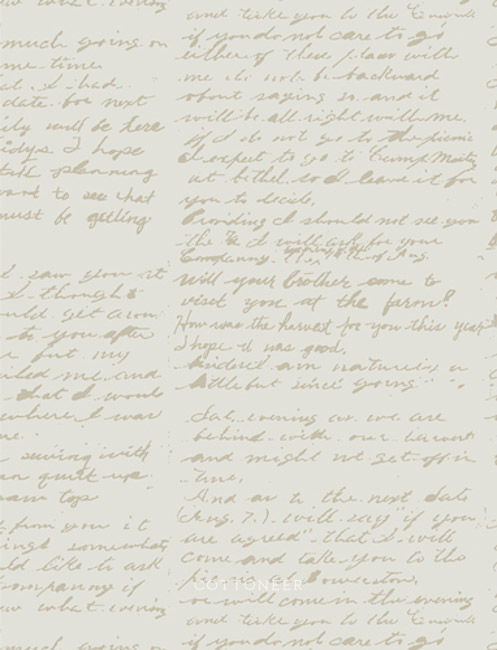 much going on
me time
at. I had.
date for next
ily will be here
idys I hope
talk planning
want to see what
must be getting
I saw you at
I thought
uld get a
to you after
r but my
iled me and
that I would
where I was
me.
sewing with
an quilt up
eam top
from you it
ings somewhat
ld like to ask
company if
ow what evening
much going on
and take you to the
if you do not care to go
either of these places with
me do not be backward
about saying so and it
will be all right with me.
If I do not go to the picnic
I expect to go to Camp Meeting
at bethel so I leave it for
you to decide.
Providing I should not see you
the I will ask for your
Company. of Aug.
Will your brother come to
visit you at the farm?
How was the harvest for you this year
I hope it was good.
am naturely a
little but since going
Sat. evening as we are
behind with our harvest
and might not get off in
time.
And as to the next date
(Aug. 7.). will say "if you
are agreed" that I will
come and take you to the
COTTONEER
Bowerston,
or will come in the evening
and take you to the
if you do not care to go